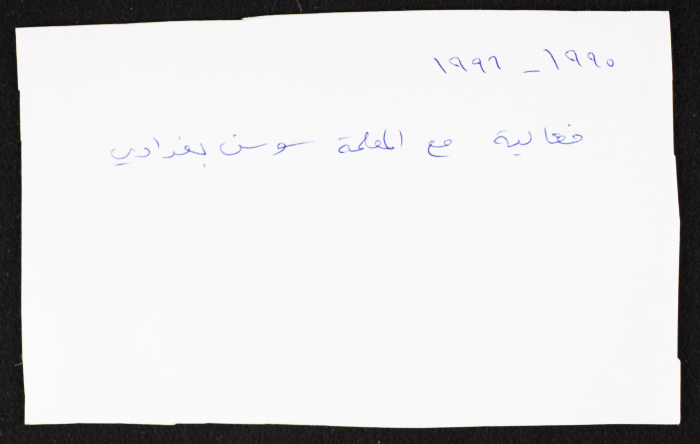 ١٩٩٠ - ١٩٩٦
فعالية مع المعلمة سوسن بغدادي